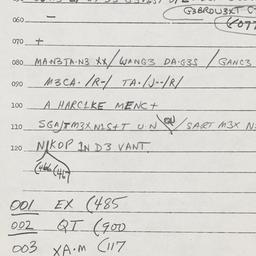 G3BRDW3XT C
060 —
(C077
070 +
080 MA·N3TA·N3 XX/ WANG3 DA·G3S / GANC3
090 M3CA· /R-/ TA·/J--/R/
100 A HARCLKE MENC+
110 SGAJTM3XN1S+T U·N / SART M3X N
120 NJKOP IN D3 VANT.
(466 (467
001 EX (485
002 QT (900
003 XA·M (117